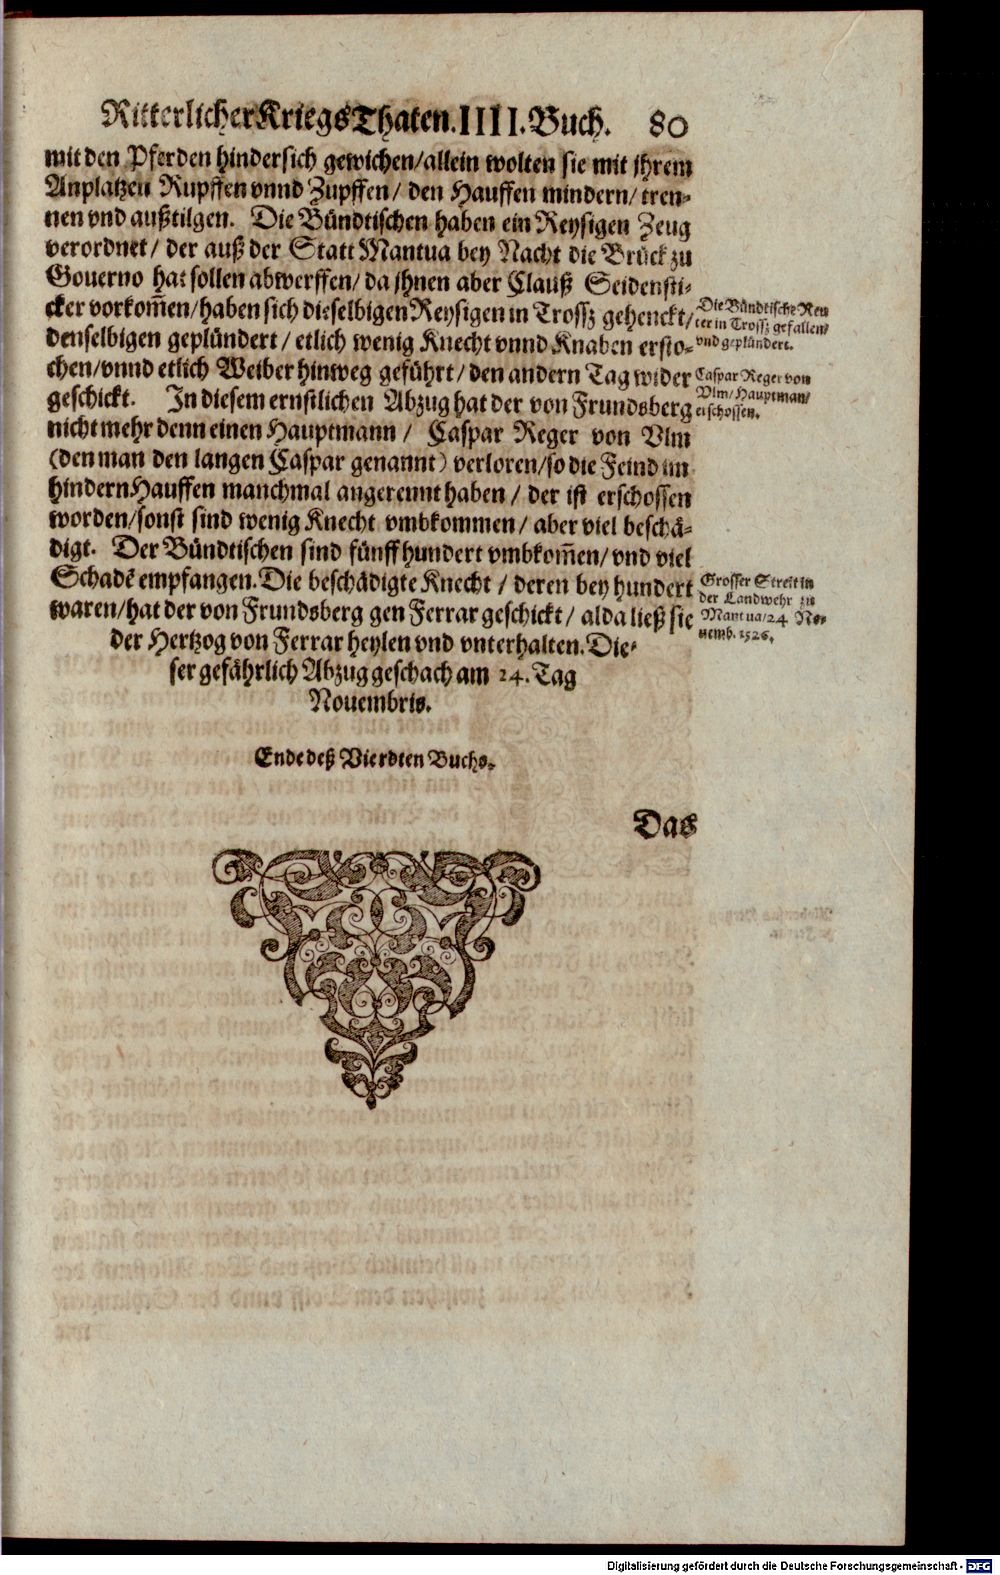 Ritterlicher Kriegs Thaten. IIII. Buch. 80
mit den Pferden hindersich gewichen/allein wolten sie mit jhrem
Anplatzen Rupffen vnnd Zupffen/ den Hauffen mindern/ tren-
nen vnd außtilgen. Die Bündtischen haben ein Reysigen Zeug
verordnet/ der auß der Statt Mantua bey Nacht die Brück zu
Gouerno hat sollen abwerffen/ da jhnen aber Clauß Seidensti-
cker vorkom̃en/haben sich dieselbigen Reysigen in Trossz gehenckt/
denselbigen geplündert/ etlich wenig Knecht vnnd Knaben ersto-
chen/vnnd etlich Weiber hinweg geführt/ den andern Tag wider
geschickt. In diesem ernstlichen Abzug hat der von Frundsberg
nicht mehr denn einen Hauptmann/ Caspar Reger von Vlm
(den man den langen Caspar genannt) verloren/so die Feind im
hindern Hauffen manchmal angerennt haben/ der ist erschossen
worden/sonst sind wenig Knecht vmbkommen/ aber viel beschä-
digt. Der Bündtischen sind fünff hundert vmbkom̃en/ vnd viel
Schadẽ empfangen. Die beschädigte Knecht/ deren bey hundert
waren/hat der von Frundsberg gen Ferrar geschickt/ alda ließ sie
der Hertzog von Ferrar heylen vnd vnterhalten. Die-
ser gefährlich Abzug geschach am 24. Tag
Nouembris.
Die Bündtische Reu
ter in Trossz gefallen/
vnd geplündert.
Caspar Reger von
Vlm/ Hauptman/
erschossen.
Grosser Streit in
der Landwehr zu
Mantua/24 No-
uemb. 1526.
Ende deß Vierdten Buchs.
Das
Digitalisierung gefördert durch die Deutsche Forschungsgemeinschaft - DFG